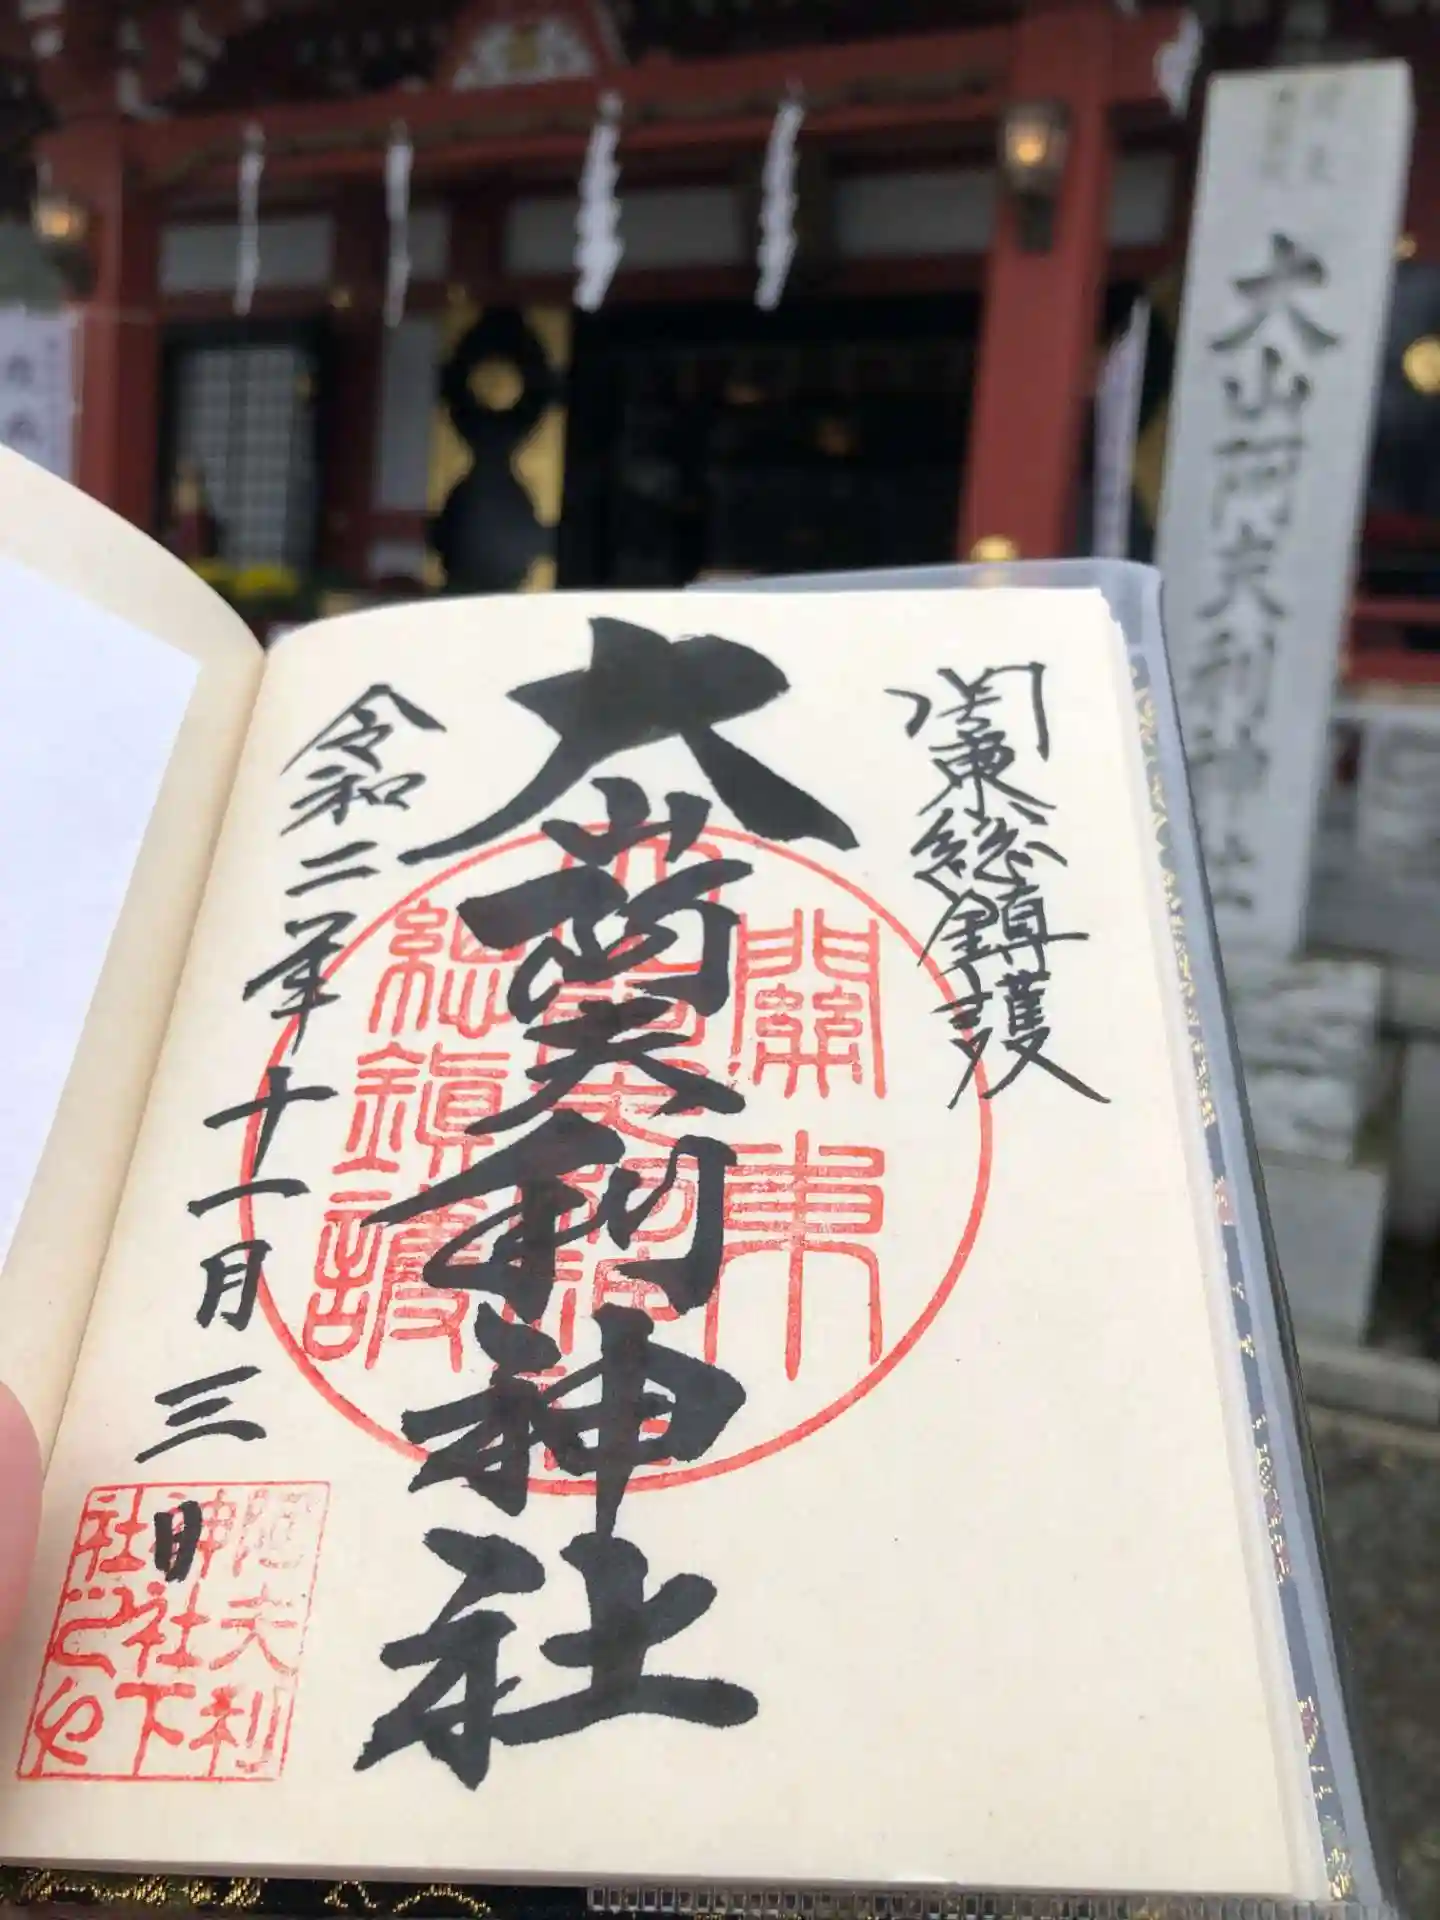 大山阿夫利神社
関東総鎮護
大山阿夫利神社
令和二年十一月三日
關東
總鎮護
阿夫利
神社下
社之印